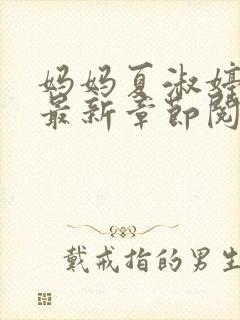 妈妈夏淑婷
最新章节阅
戴戒指的男生